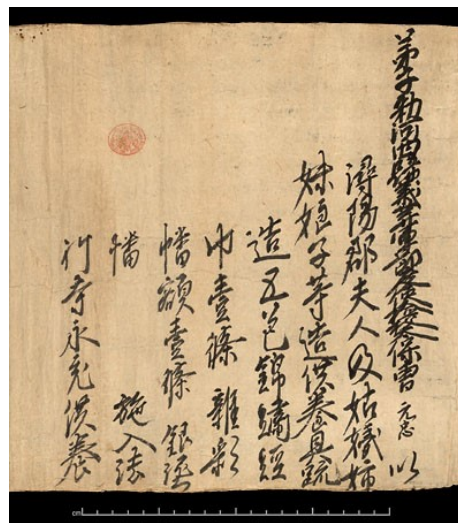 弟子勅河西歸義軍節度使檢校太保曹 元忠 以
潯陽郡夫人及姑姨姉
妹娘子等造供養具疏
造五色錦繡經
巾壹條 雜彩
幡額壹條 銀泥
幡 施入法
行寺永充供養
cm